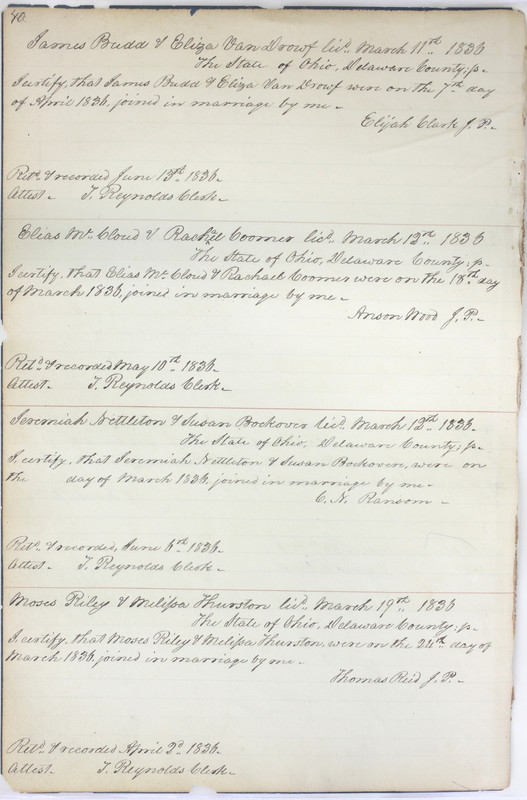 70.
James Budd & Eliza Van Drowf licd. March 11th 1836
The State of Ohio, Delaware County; p-
I certify, that James Budd & Eliza Van Drowf were on the 7th day
of April 1836, joined in marriage by me-
Elijah Clark J. P.-
Retd. & recorded June 13th 1836-
Attest- T. Reynolds Clerk-
Elias Mc Cloud & Rachael Coomer licd. March 12th 1836
The State of Ohio, Delaware County; p-
I certify, that Elias Mc Cloud & Rachael Coomer were on the 18th day
of March 1836, joined in marriage by me-
Anson Wood J. P.-
Retd. & recorded May 10th 1836-
Attest- T. Reynolds Clerk-
Jeremiah Nettleton & Susan Bockover licd. March 12th 1836-
The State of Ohio, Delaware County; p-
I certify, that Jeremiah Nettleton & Susan Bockover, were on
the day of March 1836, joined in marriage by me-
C. N. Ransom-
Retd. & recorded, June 6th 1836-
Attest- T. Reynolds Clerk-
Moses Riley & Melissa Thurston licd. March 19th 1836
The State of Ohio, Delaware County; p-
I certify, that Moses Riley & Melissa Thurston, were on the 24th day of
March 1836, joined in marriage by me-
Thomas Reid J. P.-
Retd. & recorded April 2d 1836-
Attest- T. Reynolds Clerk-